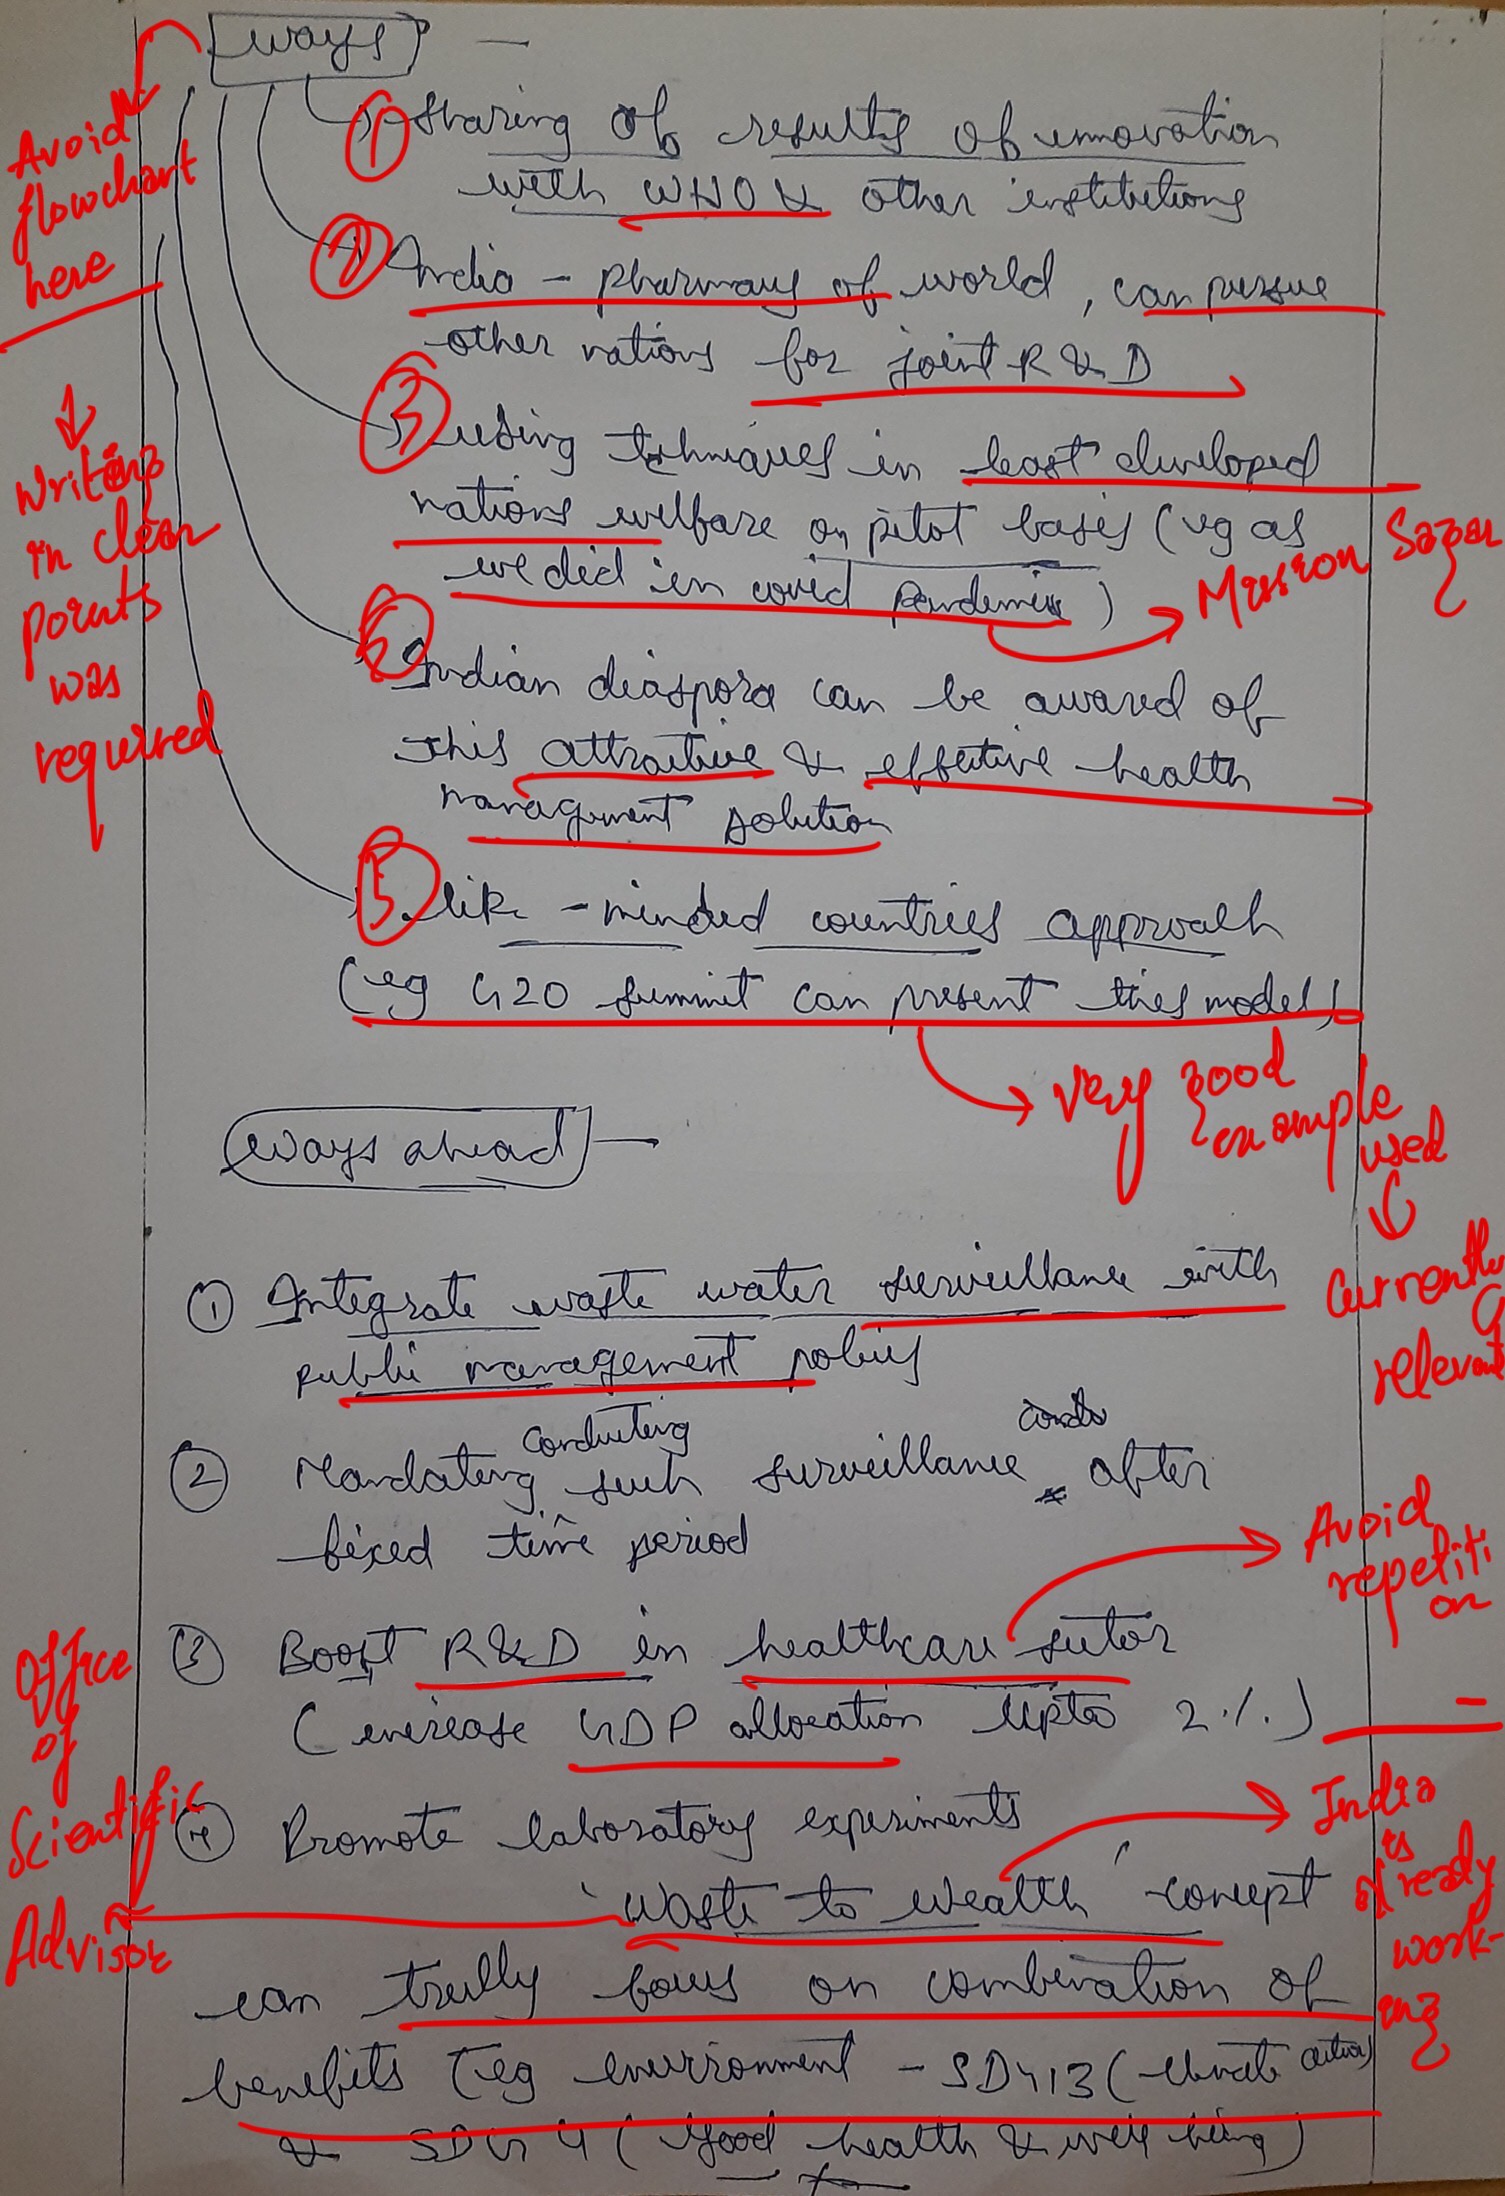 ways —
Avoid
flowchart
here
↓
Writing
in clear
points
was
required
① Sharing of results of innovation
with WHO & other institutions
② India - pharmacy of world, can pursue
other nations for joint R & D
③ using techniques in least developed
nations welfare on pilot basis (eg as
we did in covid pandemic)
→ Mission Sagar
Indian diaspora can be awared of
this attractive & effective health
management solution
⑤ like - minded countries approach
(eg G20 summit can present this model)
→ Very good
example
used
↓
Currently
relevant
ways ahead —
① Integrate waste water surveillance with
public management policy
② Mandating conducting such surveillance after
fixed time period
③ Boost R&D in healthcare sector
(increase GDP allocation upto 2%.)
→ Avoid
repetiti
on
④ Promote laboratory experiments
'waste to wealth' concept
→ India
is
already
work-
ing
Office
of
Scientific
Advisor
can truly focus on combination of
benefits (eg environment - SDG 13 (climate action)
& SDG 4 (Good health & well being)